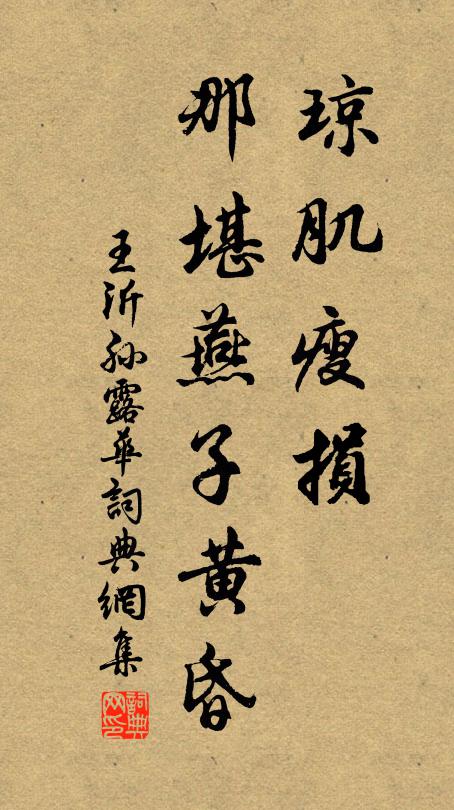 琼肌瘦損
那堪燕子黄昏
王沂孙露華詞典網集
詞典网印